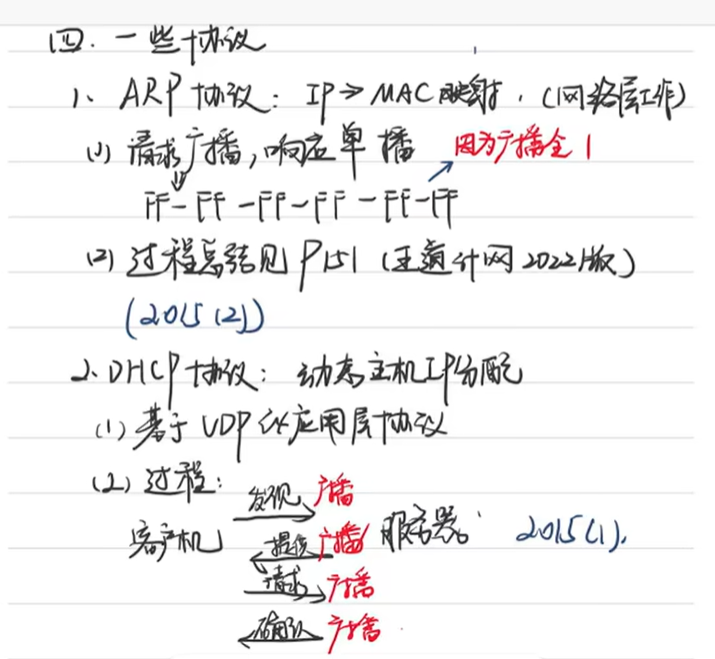 四. 一些协议
1、ARP协议：IP→MAC映射.（网络层工作）
(1) 请求广播，响应单播 因为广播全1
FF-FF-FF-FF-FF-FF
(2) 过程总结见P151（王道计网2022版）
(2015(2))
2、DHCP协议：动态主机IP分配
(1) 基于UDP的应用层协议
(2) 过程：
发现 广播
客户机 提供 广播 服务器 2015(1).
请求 广播
确认 广播